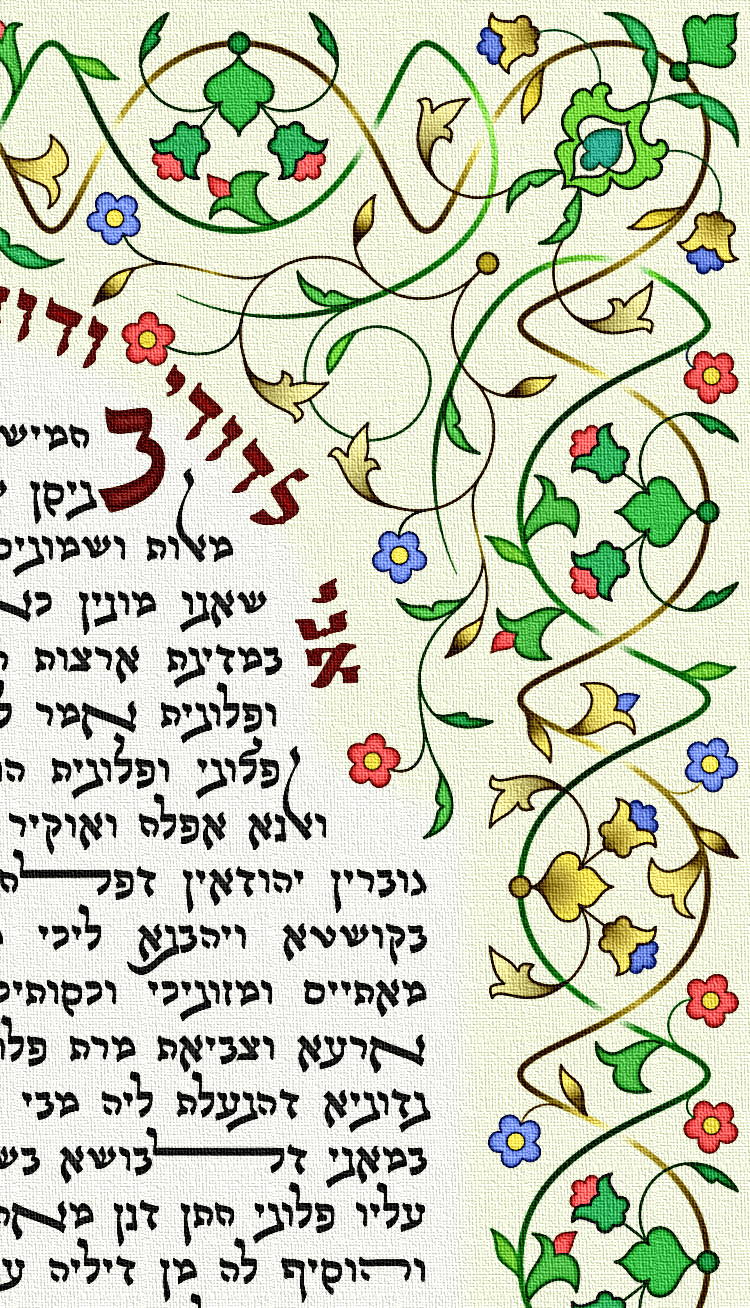 אני לדודי ודו
ב חמיש
ניסן
מאות ושמוני
שאנו מונין כא
במדינת ארצות
ופלונית אמר ל
פלוני ופלונית הו
ואנא אפלח ואוקיר
גוברין יהודאין דפלח
בקושטא ויהבנא ליכי
מאתיים ומזוניכי וכסותיכ
ארעא וצביאת מרת פלו
נדוניא דהנעלת ליה מבי
במאני דלבושא בש
עליו פלוני חתן דנן מאה
והוסיף לה מן דיליה ע